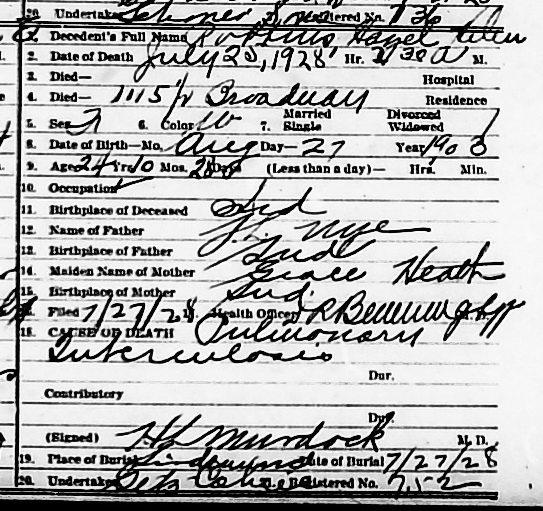 20. Undertaker Registered No. 736
Decedent's Full Name Robbins Hazel Helen
2. Date of Death July 25, 1928 Hr. 30 A M.
3. Died— Hospital
4. Died— 1115 Broadway Residence
5. Sex F 6. Color W 7. Married Single Divorced Widowed
8. Date of Birth—Mo. Aug Day—27 Year 190
9. Age 24 Yrs. 10 Mos. 28 Days (Less than a day)— Hrs. Min.
10. Occupation
11. Birthplace of Deceased Ind
12. Name of Father Nye
13. Birthplace of Father Ind
14. Maiden Name of Mother Grace Heath
15. Birthplace of Mother Ind.
Filed 7/27/28 Health Officer
18. CAUSE OF DEATH Pulmonary
Tuberculosis
Dur.
Contributory
Dur.
(Signed) Murdock M. D.
19. Place of Burial Date of Burial 7/27/28
20. Undertaker Registered No. 752